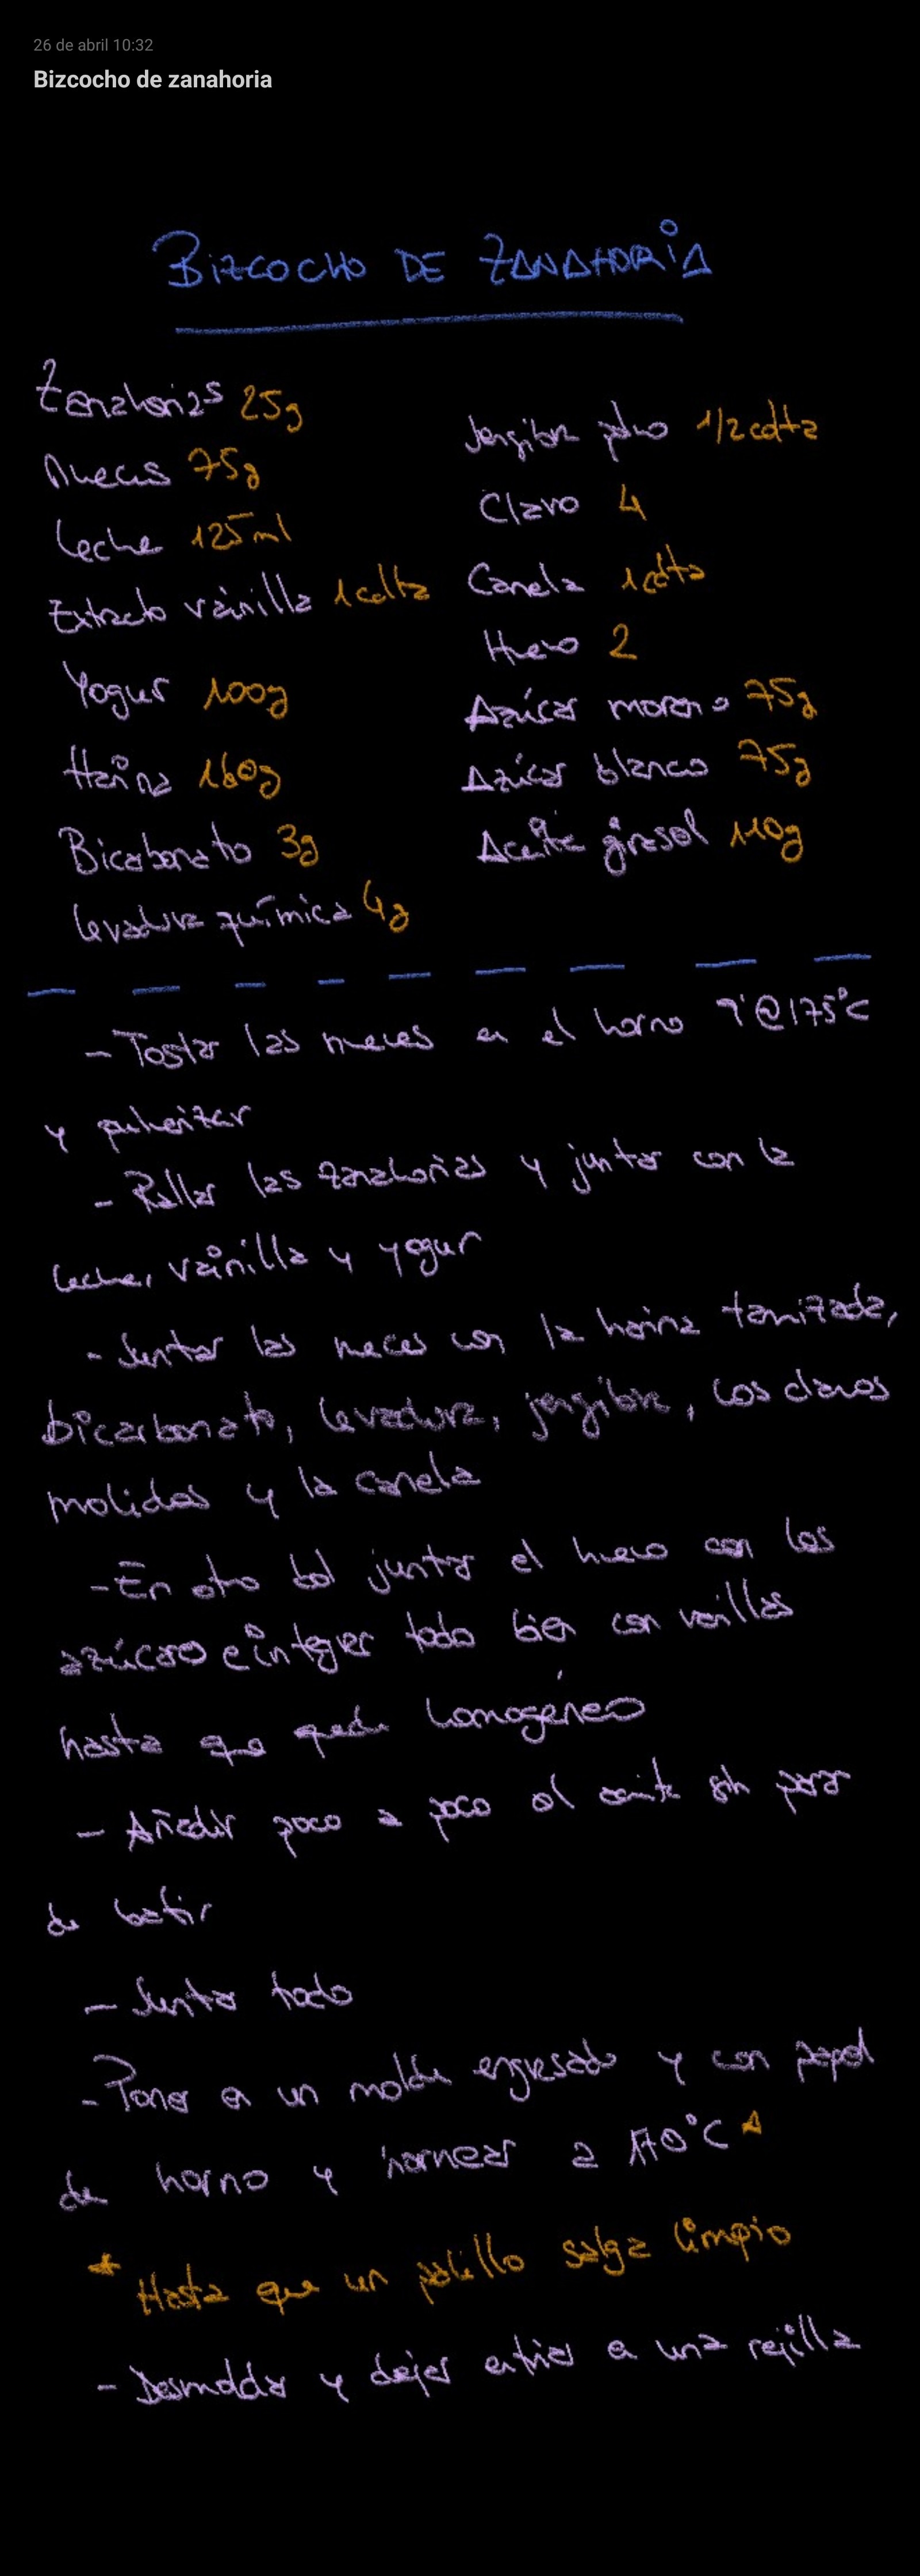 26 de abril 10:32
Bizcocho de zanahoria
BIZCOCHO DE ZANAHORIA
Zanahorias 25g
Nueces 75g
Leche 125ml
Extracto vainilla 1cdta
Yogur 100g
Harina 160g
Bicarbonato 3g
Levadura química 4g
Jengibre polvo 1/2 cdta
Clavo 4
Canela 1cdta
Huevo 2
Azúcar moreno 75g
Azúcar blanco 75g
Aceite girasol 110g
- Tostar las nueces en el horno 7' @ 175°C
y pulverizar
- Rallar las zanahorias y juntar con la
leche, vainilla y yogur
- Juntar las nueces con la harina tamizada,
bicarbonato, levadura, jengibre, los clavos
molidos y la canela
- En otro bol juntar el huevo con los
azúcares e integrar todo bien con varillas
hasta que quede homogéneo
- Añadir poco a poco el aceite sin parar
de batir
- Juntar todo
- Poner en un molde engrasado y con papel
de horno y hornear a 170°C
* Hasta que un palillo salga limpio
- Desmoldar y dejar enfriar en una rejilla